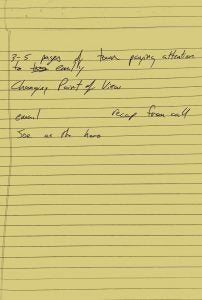 3-5 pages of town paying attention
to emily
Changing Point of View
email recap from call
Joe as the hero